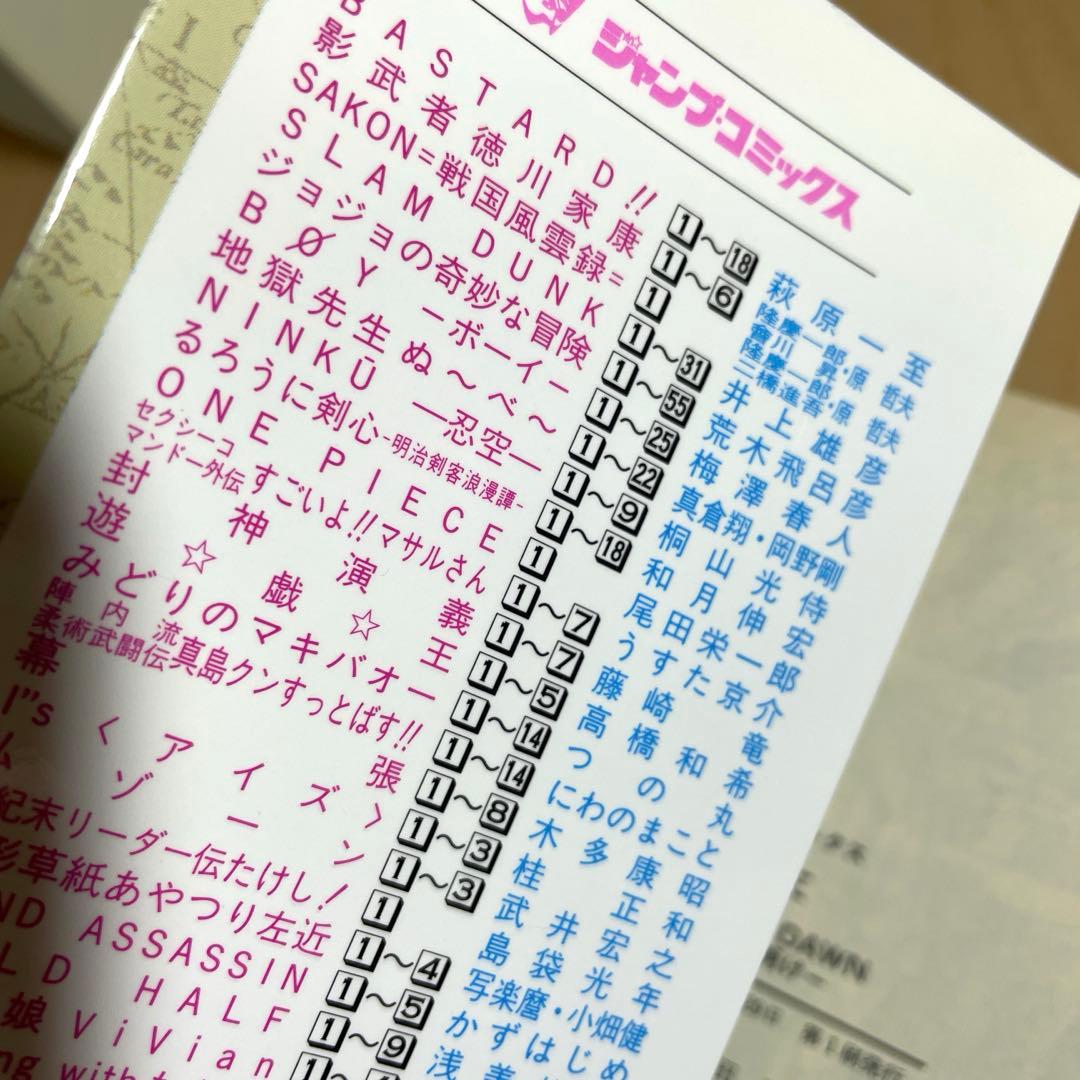 ジャンプ・コミックス
BASTARD!! 1〜18 萩原一至
影武者徳川家康 1〜6 隆慶一郎・原哲夫 會川昇
SAKON=戦国風雲録= 1 隆慶一郎・原哲夫 二橋進吾
SLAM DUNK 1〜31 井上雄彦
ジョジョの奇妙な冒険 1〜55 荒木飛呂彦
BØY―ボーイ― 1〜25 梅澤春人
地獄先生ぬ〜べ〜 1〜22 真倉翔・岡野剛
NINKŪ―忍空― 1〜9 桐山光侍
るろうに剣心-明治剣客浪漫譚- 1〜18 和月伸宏
ONE PIECE 1 尾田栄一郎
セクシーコマンドー外伝 すごいよ!!マサルさん 1〜7 うすた京介
封神演義 1〜7 藤崎竜
遊☆戯☆王 1〜5 高橋和希
みどりのマキバオー 1〜14 つの丸
陣内流柔術武闘伝真島クンすっとばす!! 1〜14 にわのまこと
幕張 1〜8 木多康昭
I"s〈アイズ〉 1〜3 桂正和
ゾーン 1〜3 武井宏之
紀末リーダー伝たけし! 1 島袋光年
形草紙あやつり左近 1〜4 写楽麿・小畑健
ND ASSASSIN 1〜5 かずはじめ
LD HALF 1〜9 浅美
娘ViVian
DAWN